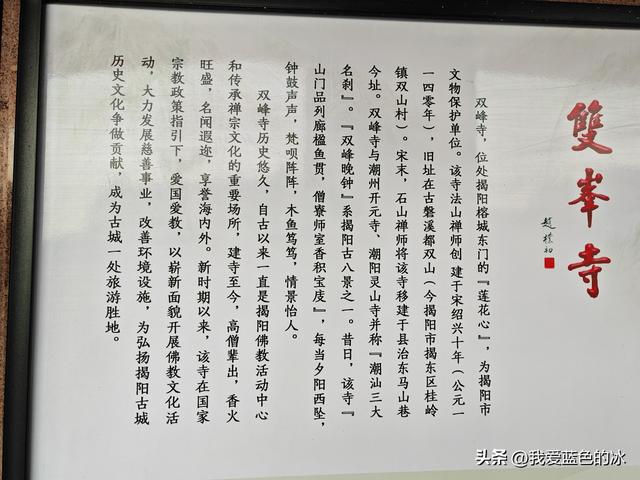 雙峯寺
趙樸初
双峰寺，位处揭阳榕城东门的『莲花心』，为揭阳市
文物保护单位。该寺法山禅师创 建于宋绍兴十年（公元一
一四零年），旧址在古磐溪都双山（今揭阳市揭东区桂岭
镇双山村）。宋末，石山禅师将该寺移建于县治东马山巷
今址。双峰寺与潮州开元寺、潮阳灵山寺并称『潮汕三大
名刹』。『双峰晚钟』系揭阳古八景之一。昔日，该寺『
山门品列廊楹鱼贯，僧寮师室香积宝庋』，每当夕阳西坠，
钟鼓声声，梵呗阵阵，木鱼笃笃，情景怡人。
双峰寺历史悠久，自古以来一直是揭阳佛教活动中心
和传承禅宗文化的重要场所，建寺至今，高僧辈出，香火
旺盛，名闻遐迩，享誉海内外。新时期以来，该寺在国家
宗教政策指引下，爱国爱教，以崭新面貌开展佛教文化活
动，大力发展慈善事业，改善环境设施，为弘扬揭阳古城
历史文化争做贡献，成为古城一处旅游胜地。
头条 @我爱蓝色的冰